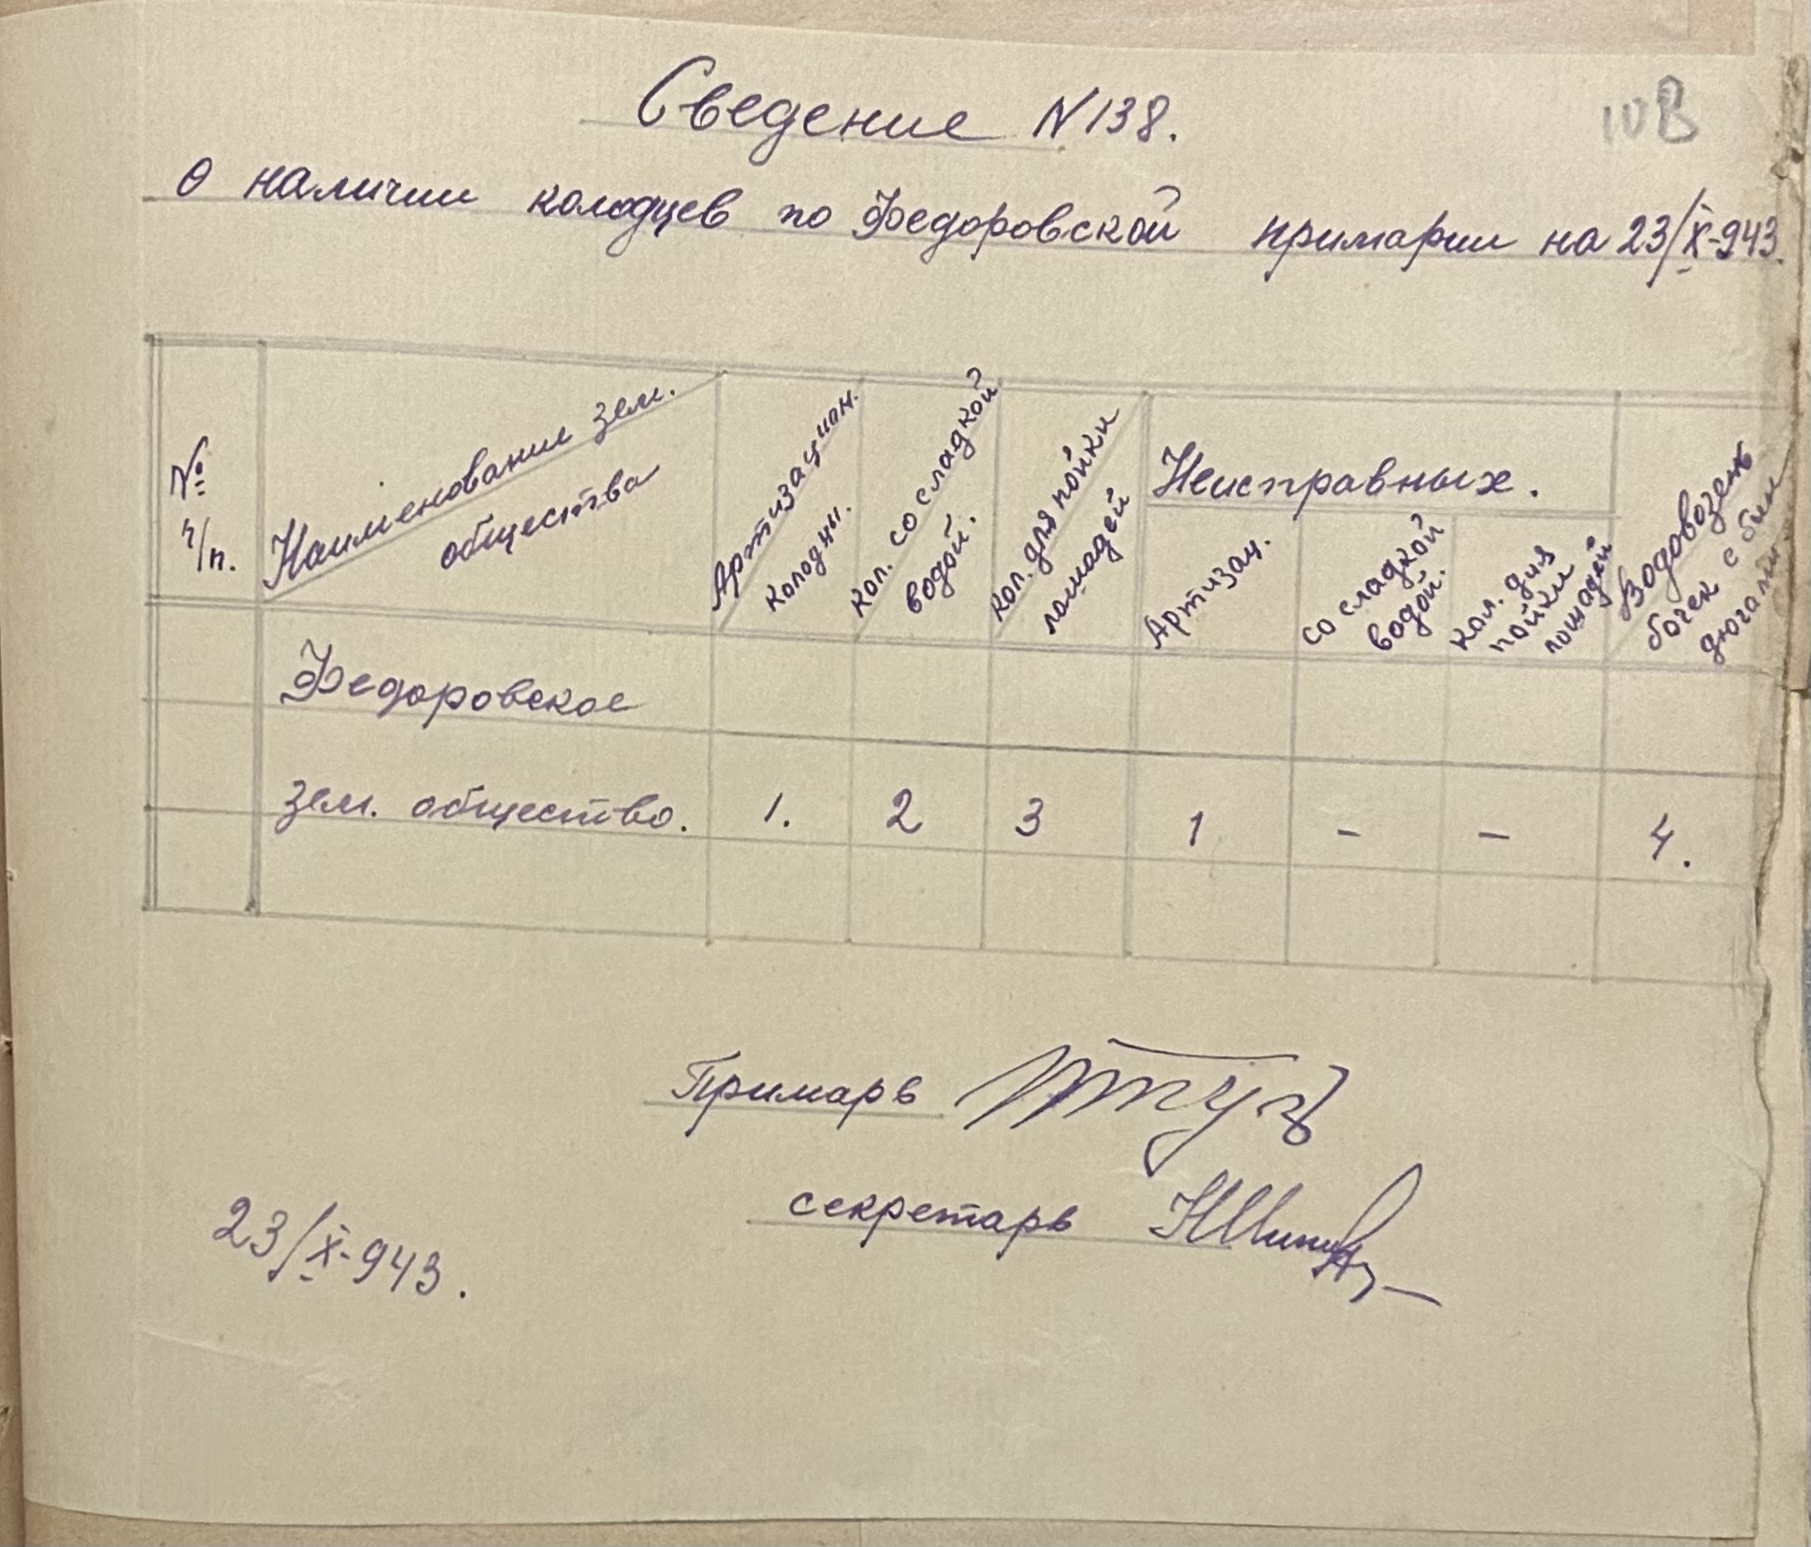 Сведение N 138.
о наличии колодцев по Федоровской примарии на 23/X-943.
№ ч/п.
Наименование зем. общества
Артизацион. колодцы.
кол. со сладкой водой.
кол. для пойки лошадей
Неисправных.
Артизац.
со сладкой водой.
кол. для пойки лошадей
Водовозень бочек с
Федоровское
зем. общество. 1. 2 3 1 - - 4.
Примарь
секретарь
23/X-943.